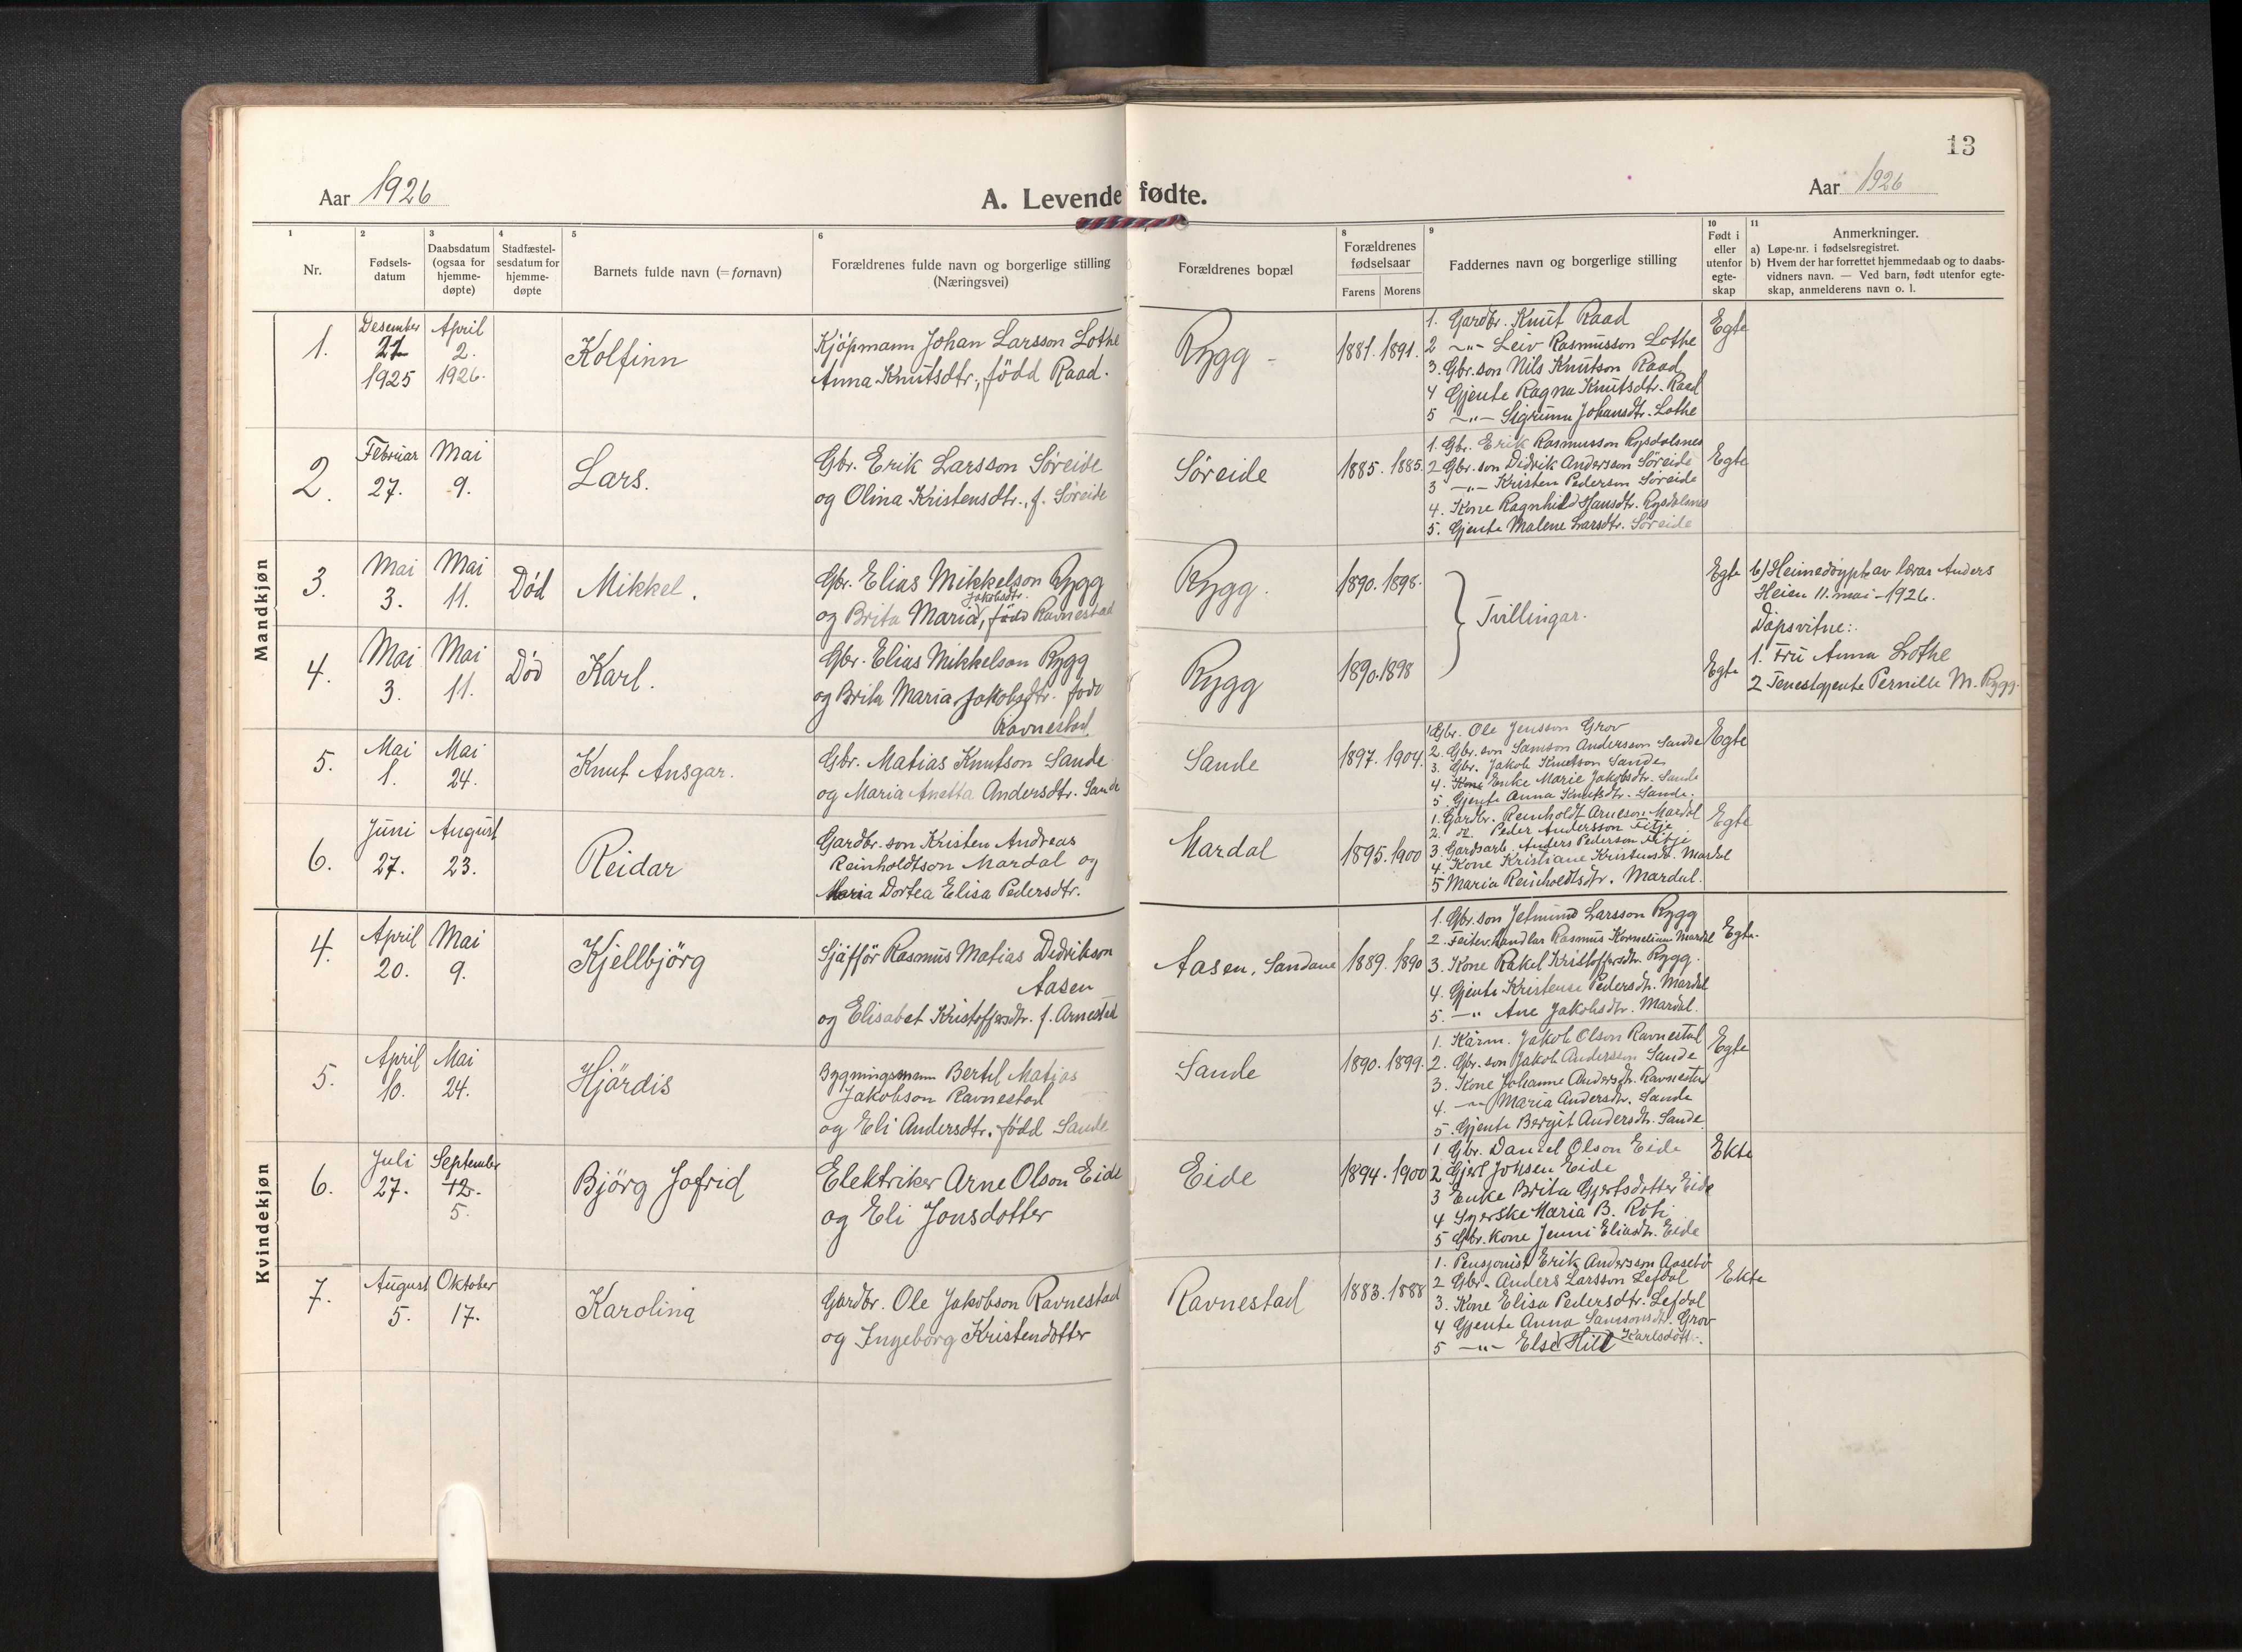 13
Aar 1926
A. Levende fødte.
Aar 1926
1
Nr.
2
Fødsels-
datum
3
Daabsdatum
(ogsaa for
hjemme-
døpte)
4
Stadfæstel-
sesdatum for
hjemme-
døpte
5
Barnets fulde navn (=fornavn)
6
Forældrenes fulde navn og borgerlige stilling
(Næringsvei)
Forældrenes bopæl
8
Forældrenes
fødselsaar
Farens Morens
9
Faddernes navn og borgerlige stilling
10
Født i
eller
utenfor
egte-
skap
11
Anmerkninger.
a) Løpe-nr. i fødselsregistret.
b) Hvem der har forrettet hjemmedaab og to daabs-
vidners navn. — Ved barn, født utenfor egte-
skap, anmelderens navn o. l.
Mandkjøn
1.
Desember
27
1925
April
2.
1926.
Kolfinn
Kjöpmann Johan Larsson Lothe
Anna Knutsdtr., född Raad.
Rygg -
1881. 1891.
1. Gardbr. Knut Raad
2 -"- Leiv Rasmusson Lothe
3. Gbr. son Nils Knutson Raad
4 Gjente Ragna Knutsdtr. Raad
5 -"- Sigrunn Johansdtr. Lothe
Egte
2.
Februar
27.
Mai
9.
Lars.
Gbr. Erik Larsson Søreide
og Olina Kristensdtr., f. Søreide
Søreide
1885. 1885.
1. Gbr. Erik Rasmusson Rygsdalsnes
2 Gbr. son Didrik Andersson Søreide
3 -"- Kristen Pederson Søreide
4. Kone Ragnhild Hansdtr. Rygsdalsnes
5. Gjente Malene Larsdtr. Søreide
Egte
3.
Mai
3.
Mai
11.
Död
Mikkel.
Gbr. Elias Mikkelson Rygg
Jakobsdtr.
og Brita Maria, född Ravnestad
Rygg.
1890. 1898.
Tvillingar.
Egte
b) Heimedöypt av lærar Anders
Heien 11. mai - 1926.
Dåpsvitne:
1. Fru Anna Lothe
2 Tenestgjente Pernille M. Rygg.
4.
Mai
3.
Mai
11.
Död
Karl.
Gbr. Elias Mikkelson Rygg
og Brita Maria Jakobsdtr. född
Ravnestad
Rygg
1890. 1898
Egte
5.
Mai
1.
Mai
24.
Knut Ansgar.
Gbr. Matias Knutson Sande
og Maria Anetta Andersdtr. Sande
Sande
1897. 1904.
1 Gbr. Ole Jensson Grov
2. Gbr. son Samson Andersson Sande
3. Gbr. Jakob Knutson Sande
4. Kone Enke Marie Jakobsdtr. Sande
5. Gjente Anna Knutsdtr. Sande.
Egte
6.
Juni
27.
August
23.
Reidar
Gardbr. son Kristen Andreas
Reinholdtson Mardal og
Maria Dortea Elisa Pedersdtr.
Mardal
1895. 1900
1. Gardbr. Reinholdt Arneson Mardal
2. Peder Andersson Fitje
3. Gardsarb. Anders Pederson Fitje
4. Kone Kristiane Kristensdt. Mardal
5 Maria Reinholdtsdtr. Mardal.
Egte
Kvindekjøn
4.
April
20.
Mai
9.
Kjellbjörg
Sjåfför Rasmus Matias Didrikson
Aasen
og Elisabet Kristoffersdtr. f. Arnestad
Aasen, Sandane
1889. 1890
1. Gbr. son Jetmund Larsson Rygg
2. Rasmus Kornelius Mardal
3. Kone Rakel Kristoffersdtr. Rygg.
4. Gjente Kristense Pedersdtr. Mardal
5. -"- Ane Jakobsdtr. Mardal.
Egte.
5.
April
10.
Mai
24.
Hjördis
Bygningsmann Bertel Matias
Jakobson Ravnestad
og Eli Andersdtr. född Sande
Sande
1890. 1899.
1. Jakob Olson Ravnestad
2. Gbr. son Jakob Andersson Sande
3. Kone Johanne Andersdtr. Ravnestad
4. -"- Maria Andersdtr. Sande
5. Gjente Bergit Andersdtr. Sande
Egte
6.
Juli
27.
September
12.
5.
Björg Jofrid
Elektriker Arne Olson Eide
og Eli Jonsdotter
Eide
1894. 1900
1 Gbr. Daniel Olson Eide
2 Gjert Johsen Eide
3 Enke Brita Gjertsdotter Eide
4 Syerske Maria B. Roti
5 Gbr. kone Jenni Eliasdtr. Eide
Ekte
7.
August
5.
Oktober
17.
Karolina
Gardbr. Ole Jakobson Ravnestad
og Ingeborg Kristendotter
Ravnestad
1883. 1888
1. Pensjonist Erik Andersson Aasebö
2 Gbr. Anders Larsson Lefdal
3. Kone Elisa Pedersdtr. Lefdal
4 Gjente Anna Samsonsdt. Grov
5 -"- Else Hill Karlsdott.
Ekte